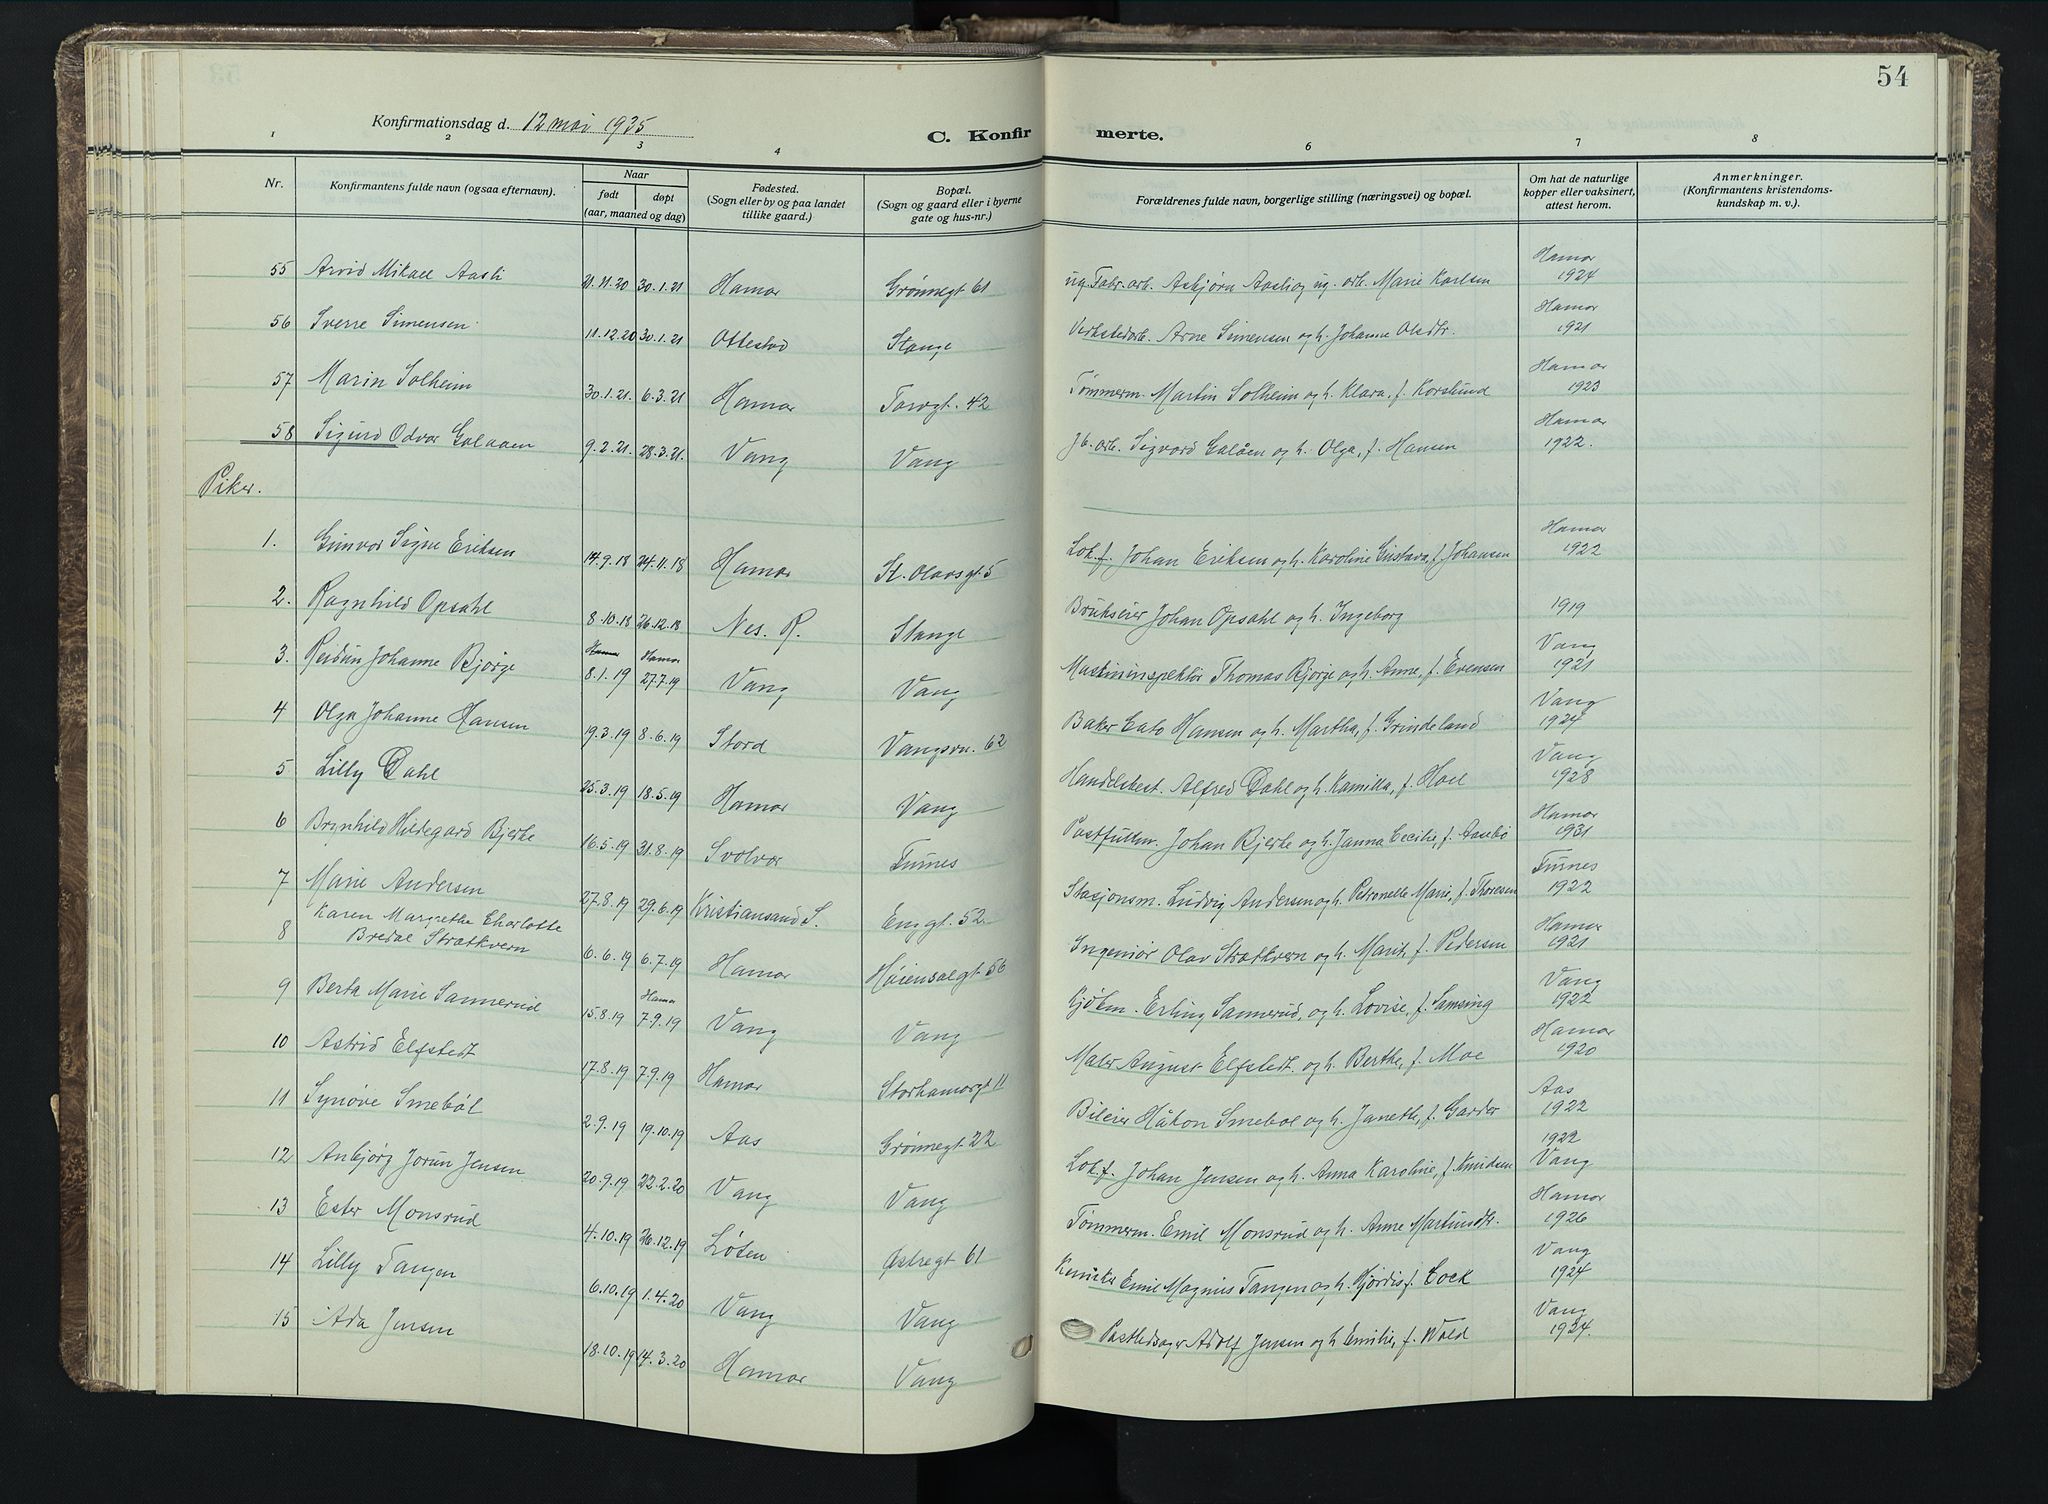 54
Konfirmationsdag d. 12 mai 1935
C. Konfirmerte.
1 2 3 4 6 7 8
Nr.
Konfirmantens fulde navn (ogsaa efternavn).
Naar
født døpt
(aar, maaned og dag)
Fødested.
(Sogn eller by og paa landet
tillike gaard.)
Bopæl.
(Sogn og gaard eller i byerne
gate og hus-nr.)
Forældrenes fulde navn, borgerlige stilling (næringsvei) og bopæl.
Om hat de naturlige
kopper eller vaksinert,
attest herom.
Anmerkninger.
(Konfirmantens kristendoms-
kundskap m. v.).
55 Arvid Mikael Aasli 21.11.20 30.1.21 Hamar Grønnegt 61 ug. Fabr. arb. Asbjørn Aasli og ug. arb. Marie Karlsen Hamar 1924
56 Sverre Simensen 11.12.20 30.1.21 Ottestad Stange Verkstedarb. Arne Simensen og h. Johanne Olsdtr. Hamar 1921
57 Marin Solheim 30.1.21. 6.3.21 Hamar Torvgt. 42 Tømmerm. Martin Solheim og h. Klara, f. Korslund Hamar 1923
58 Sigurd Odvar Galaaen 9.2.21. 28.3.21. Vang Vang Jb. arb. Sigvard Galåen og h. Olga, f. Hansen Hamar 1922.
Piker.
1. Gunvor Signe Eriksen 14.9.18 24.11.18 Hamar St. Olavsgt. 5 Lok.f. Johan Eriksen og h. Karoline Gustava, f. Johansen Hamar 1922
2. Ragnhild Opsahl 8.10.18 26.12.18 Nes. R. Stange Brukseier Johan Opsahl og h. Ingeborg 1919
3. Reidun Johanne Bjørge Hamar 8.1.19 Hamar 27.7.19 Vang Vang Maskininspektør Thomas Bjørge og h. Anne, f. Evensen Vang 1921
4 Olga Johanne Hansen 19.3.19 8.6.19 Stord Vangsvn. 62 Baker Cato Hansen og h. Martha, f. Grindeland Vang 1924
5 Lilly Dahl 25.3.19 18.5.19 Hamar Vang Handelsbest. Alfred Dahl og h. Kamilla, f. Hoel Vang 1928
6 Brynhild Hildegard Bjerke 16.5.19 31.8.19 Svolvær Furnes Postfullm. Johan Bjerke og h. Janna Cecilie, f. Aasebø Hamar 1931
7 Marie Andersen 27.8.19 29.6.19 Kristiansand S. Enggt. 52 Stasjonsm. Ludvig Andersen og h. Petronelle Marie, f. Thoresen Furnes 1922
8 Karen Margrethe Charlotte
Bredal Strætkvern 6.6.19 6.7.19 Hamar Høiensalgt 56 Ingeniør Olav Strætkvern og h. Marit, f. Pedersen Hamar 1921
9 Berta Marie Sannerud 15.8.19 Hamar 7.9.19 Vang Vang Kjøbm. Erling Sannerud, og h. Lovise, f. Samsing Vang 1922
10 Astrid Elfstedt 17.8.19 7.9.19 Hamar Storhamargt 11 Maler August Elfstedt og h. Berthe, f. Moe Hamar 1920
11 Synøve Smebøl 2.9.19 19.10.19 Aas Grønnegt 22 Bileier Håkon Smebøl og h. Janethe, f. Garder Aas 1922
12 Anbjørg Jorun Jensen 20.9.19 22.2.20 Vang Vang Lok.f. Johan Jensen og h. Anna Karoline, f. Knudsen 1922 Vang
13 Ester Monsrud 4.10.19 26.12.19 Løten Østregt 61 Tømmerm. Emil Monsrud og h. Anne Martinsdtr. Hamar 1926
14 Lilly Tangen 6.10.19 1.4.20 Vang Vang Emil Magnus Tangen og h. Hjørdis f. Cock Vang 1924
15 Ada Jensen 18.10.19 14.3.20 Hamar Vang Postledsager Adolf Jensen og h. Emilie, f. Wold Vang 1924.